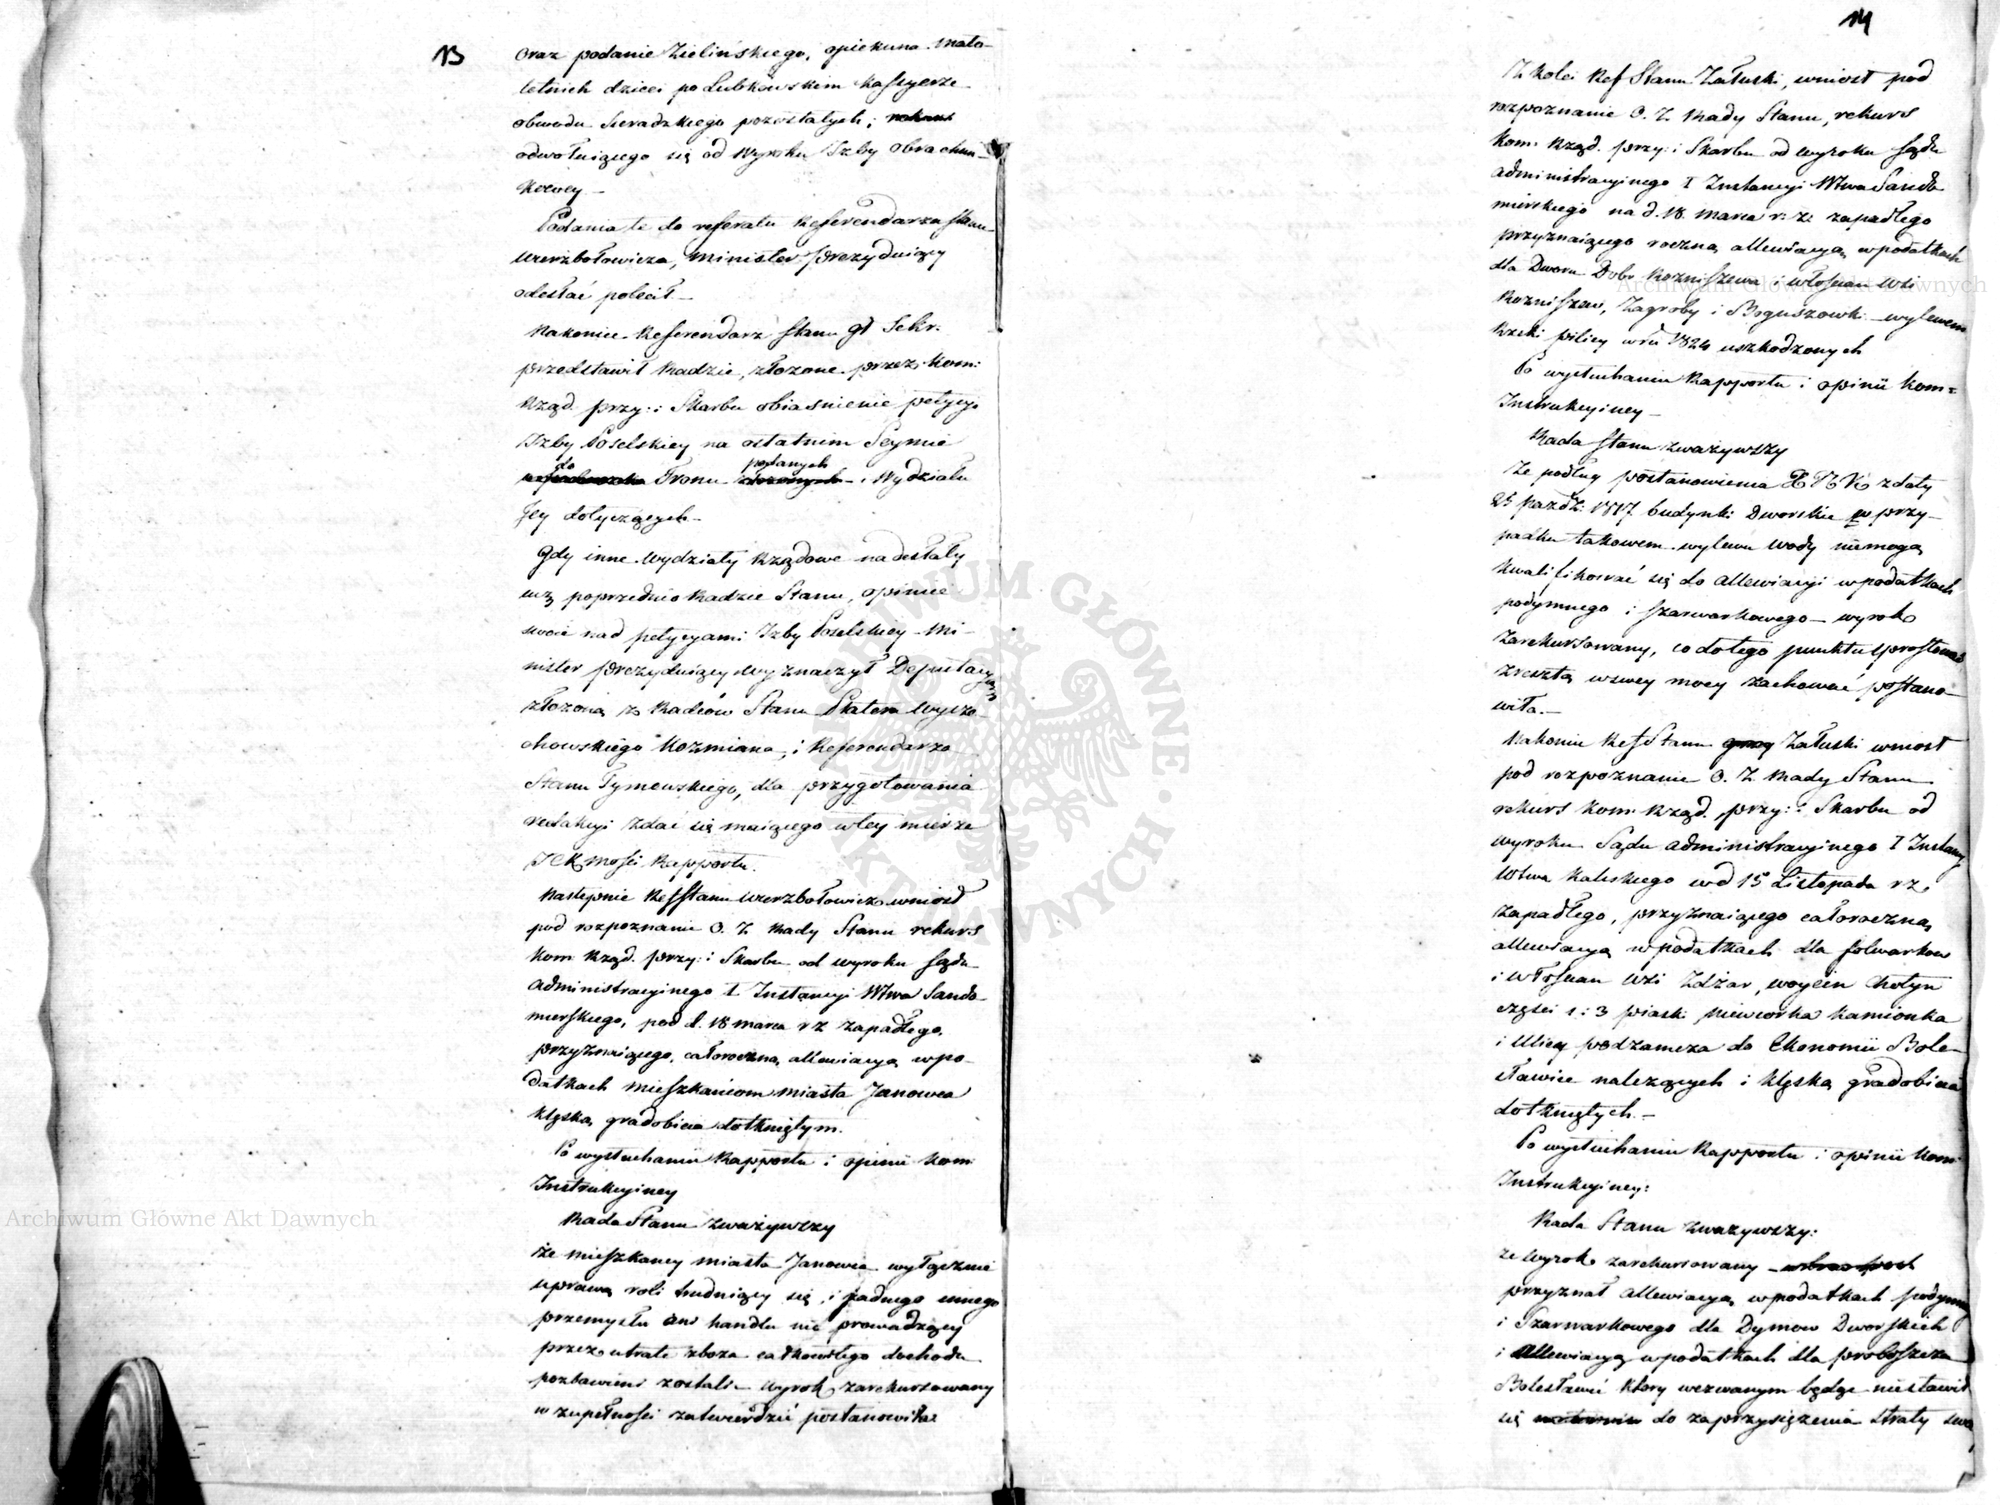 13
oraz podanie Zielińskiego, opiekuna mało-
letnich dzieci po Lubkowskim Kassyerze
obwodu Sieradzkiego pozostałych;
odwołuiącego się od wyroku Izby obrachun-
kowey –
Podania te do referatu Referendarza Stanu
Wierzbołowicza, Minister prezyduiący
odesłać polecił –
Nakoniec Referendarz Stanu gł Sekr.
przedstawił Radzie, złożone przez Kom:
Rząd. przy: i Skarbu obiaśnienie petycyi
Izby Poselskiey na ostatnim Seymie
do Tronu podanych i Wydziału
Jey dotyczących –
Gdy inne wydziały Rządowe nadesłały
iuż poprzednio Radzie Stanu, opinie
swoie nad petycyami Izby Poselskiey – Mi-
nister prezyduiący wyznaczył Deputacyą
złożoną z Radców Stanu Platera Wyczo-
chowskiego Koźmiana, i Referendarza
Stanu Tymowskiego, dla przygotowania
redakcyi zdać się maiącego w tey mierze
JCKMości Rapportu.
Następnie Ref Stanu Wierzbołowicz wniosł
pod rozpoznanie O. Z. Rady Stanu rekurs
Kom Rząd. przy: i Skarbu od wyroku Sądu
administracyinego I Instancyi Wtwa Sando-
mierskiego, pod d. 18 marca r z zapadłego,
przyznaiącego, całoroczną allewiacyą w po-
datkach mieszkańcom miasta Janowca
klęską gradobicia dotkniętym.
Po wysłuchaniu Rapportu i opinii Kom:
Instrukcyiney
Rada Stanu zważywszy
że mieszkańcy miasta Janowca wyłącznie
uprawą roli trudniący się, i żadnego innego
przemysłu ani handlu nie prowadzący
przez utratę zboża całkowitego dochodu
pozbawieni zostali – wyrok zarekursowany
w zupełności zatwierdzić postanowiła
14
Z kolei Ref Stanu Załuski, wniosł pod
rozpoznanie O. Z. Rady Stanu, rekurs
Kom. Rząd. przy: i Skarbu od wyroku Sądu
administracyinego I Instancyi Wtwa Sando
mierskiego na d. 18. marca r: z: zapadłego
przyznaiącego roczną allewiacyą w podatkach
dla Dworu Dobr Rozniszewa i włościan wsi
Rozniszew, Zagroby i Boguszowki – wylewem
Rzeki pilicy w r. 1824 uszkodzonych
Po wysłuchaniu Rapportu i opinii Kom=
Instrukcyiney –
Rada Stanu zważywszy
że podług postanowienia z daty
25 paźdź: 1817. budynki Dworskie w przy-
padku takowem wylewu wody niemogą
kwalifikować się do allewiacyi w podatkach
podymnego i szarwarkowego – wyrok
zarekursowany, co do tego punktu
zresztą w swey mocy zachować postano-
wiła. –
Nakoniec Ref Stanu Załuski wniosł
pod rozpoznanie O. Z. Rady Stanu
rekurs Kom. Rząd. przy: i Skarbu od
wyroku Sądu administracyinego I Instancyi
Wtwa Kaliskiego w d 15 Listopada r z.
zapadłego, przyznaiącego całoroczną
allewiacyą w podatkach dla folwarkow
i Włościan Wsi Zdżar, woycin Chotyn
części 1: i 3 piaski Mieworka Kamionka
i Ulicy podzamcza do Ekonomii Bole-
sławice należących i klęską gradobicia
dotkniętych. –
Po wysłuchaniu Rapportu i opinii Kom
Instrukcyiney:
Rada Stanu zważywszy:
że wyrok zarekursowany
przyznał allewiacyą w podatkach podymn
i Szarwarkowego dla Dymow Dworskich
i allewiacyą w podatkach dla proboszcza
Bolesławic który wezwanym będąc niestawił
się do zaprzysiężenia straty swey
Archiwum Główne Akt Dawnych
Archiwum Główne Akt Dawnych
ARCHIWUM GŁÓWNE AKT DAWNYCH